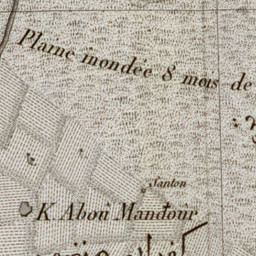 Plaine inondée 8 mois de
Santon
K Abou Mandour